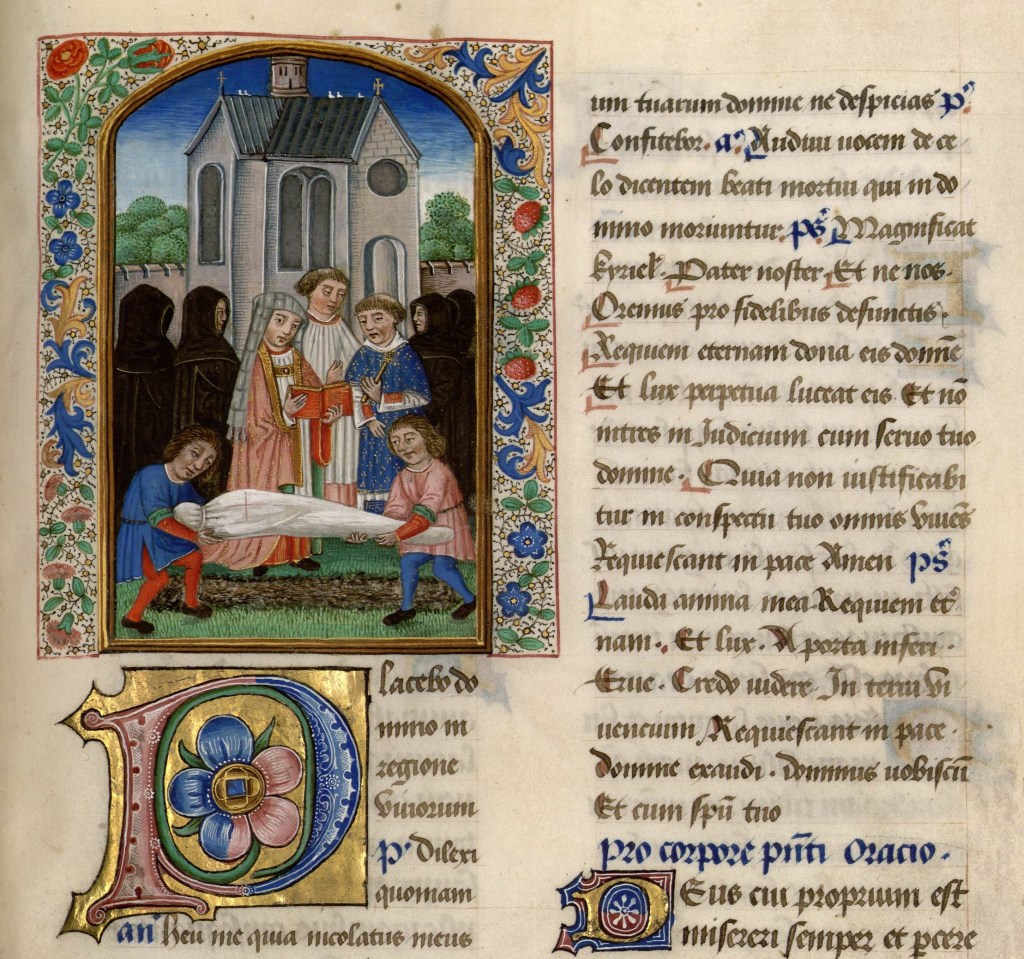 Placebo do
mino in
regione
viuorum
ps Dilexi
quoniam
an Heu me quia incolatus meus
um tuarum domine ne despicias ps
Confitebor. an Audiui uocem de ce
lo dicentem beati mortui qui in do
mino moriuntur ps Magnificat
kyriel. Pater noster Et ne nos.
Oremus pro fidelibus defunctis.
Requiem eternam dona eis domine
Et lux perpetua luceat eis Et nō
intres in Judicium cum seruo tuo
domine. Quia non iustificabi
tur in conspectu tuo omnis viuēs
Requiescant in pace Amen ps
Lauda anima mea Requiem etr
nam. Et lux. A porta inferi.
Erue. Credo uidere In terra vi
uencium Requiescant in pace.
Domine exaudi. dominus uobiscū
Et cum spū tuo
pro corpore pn̄ti Oracio.
Deus cui proprium est
misereri semper et pcere